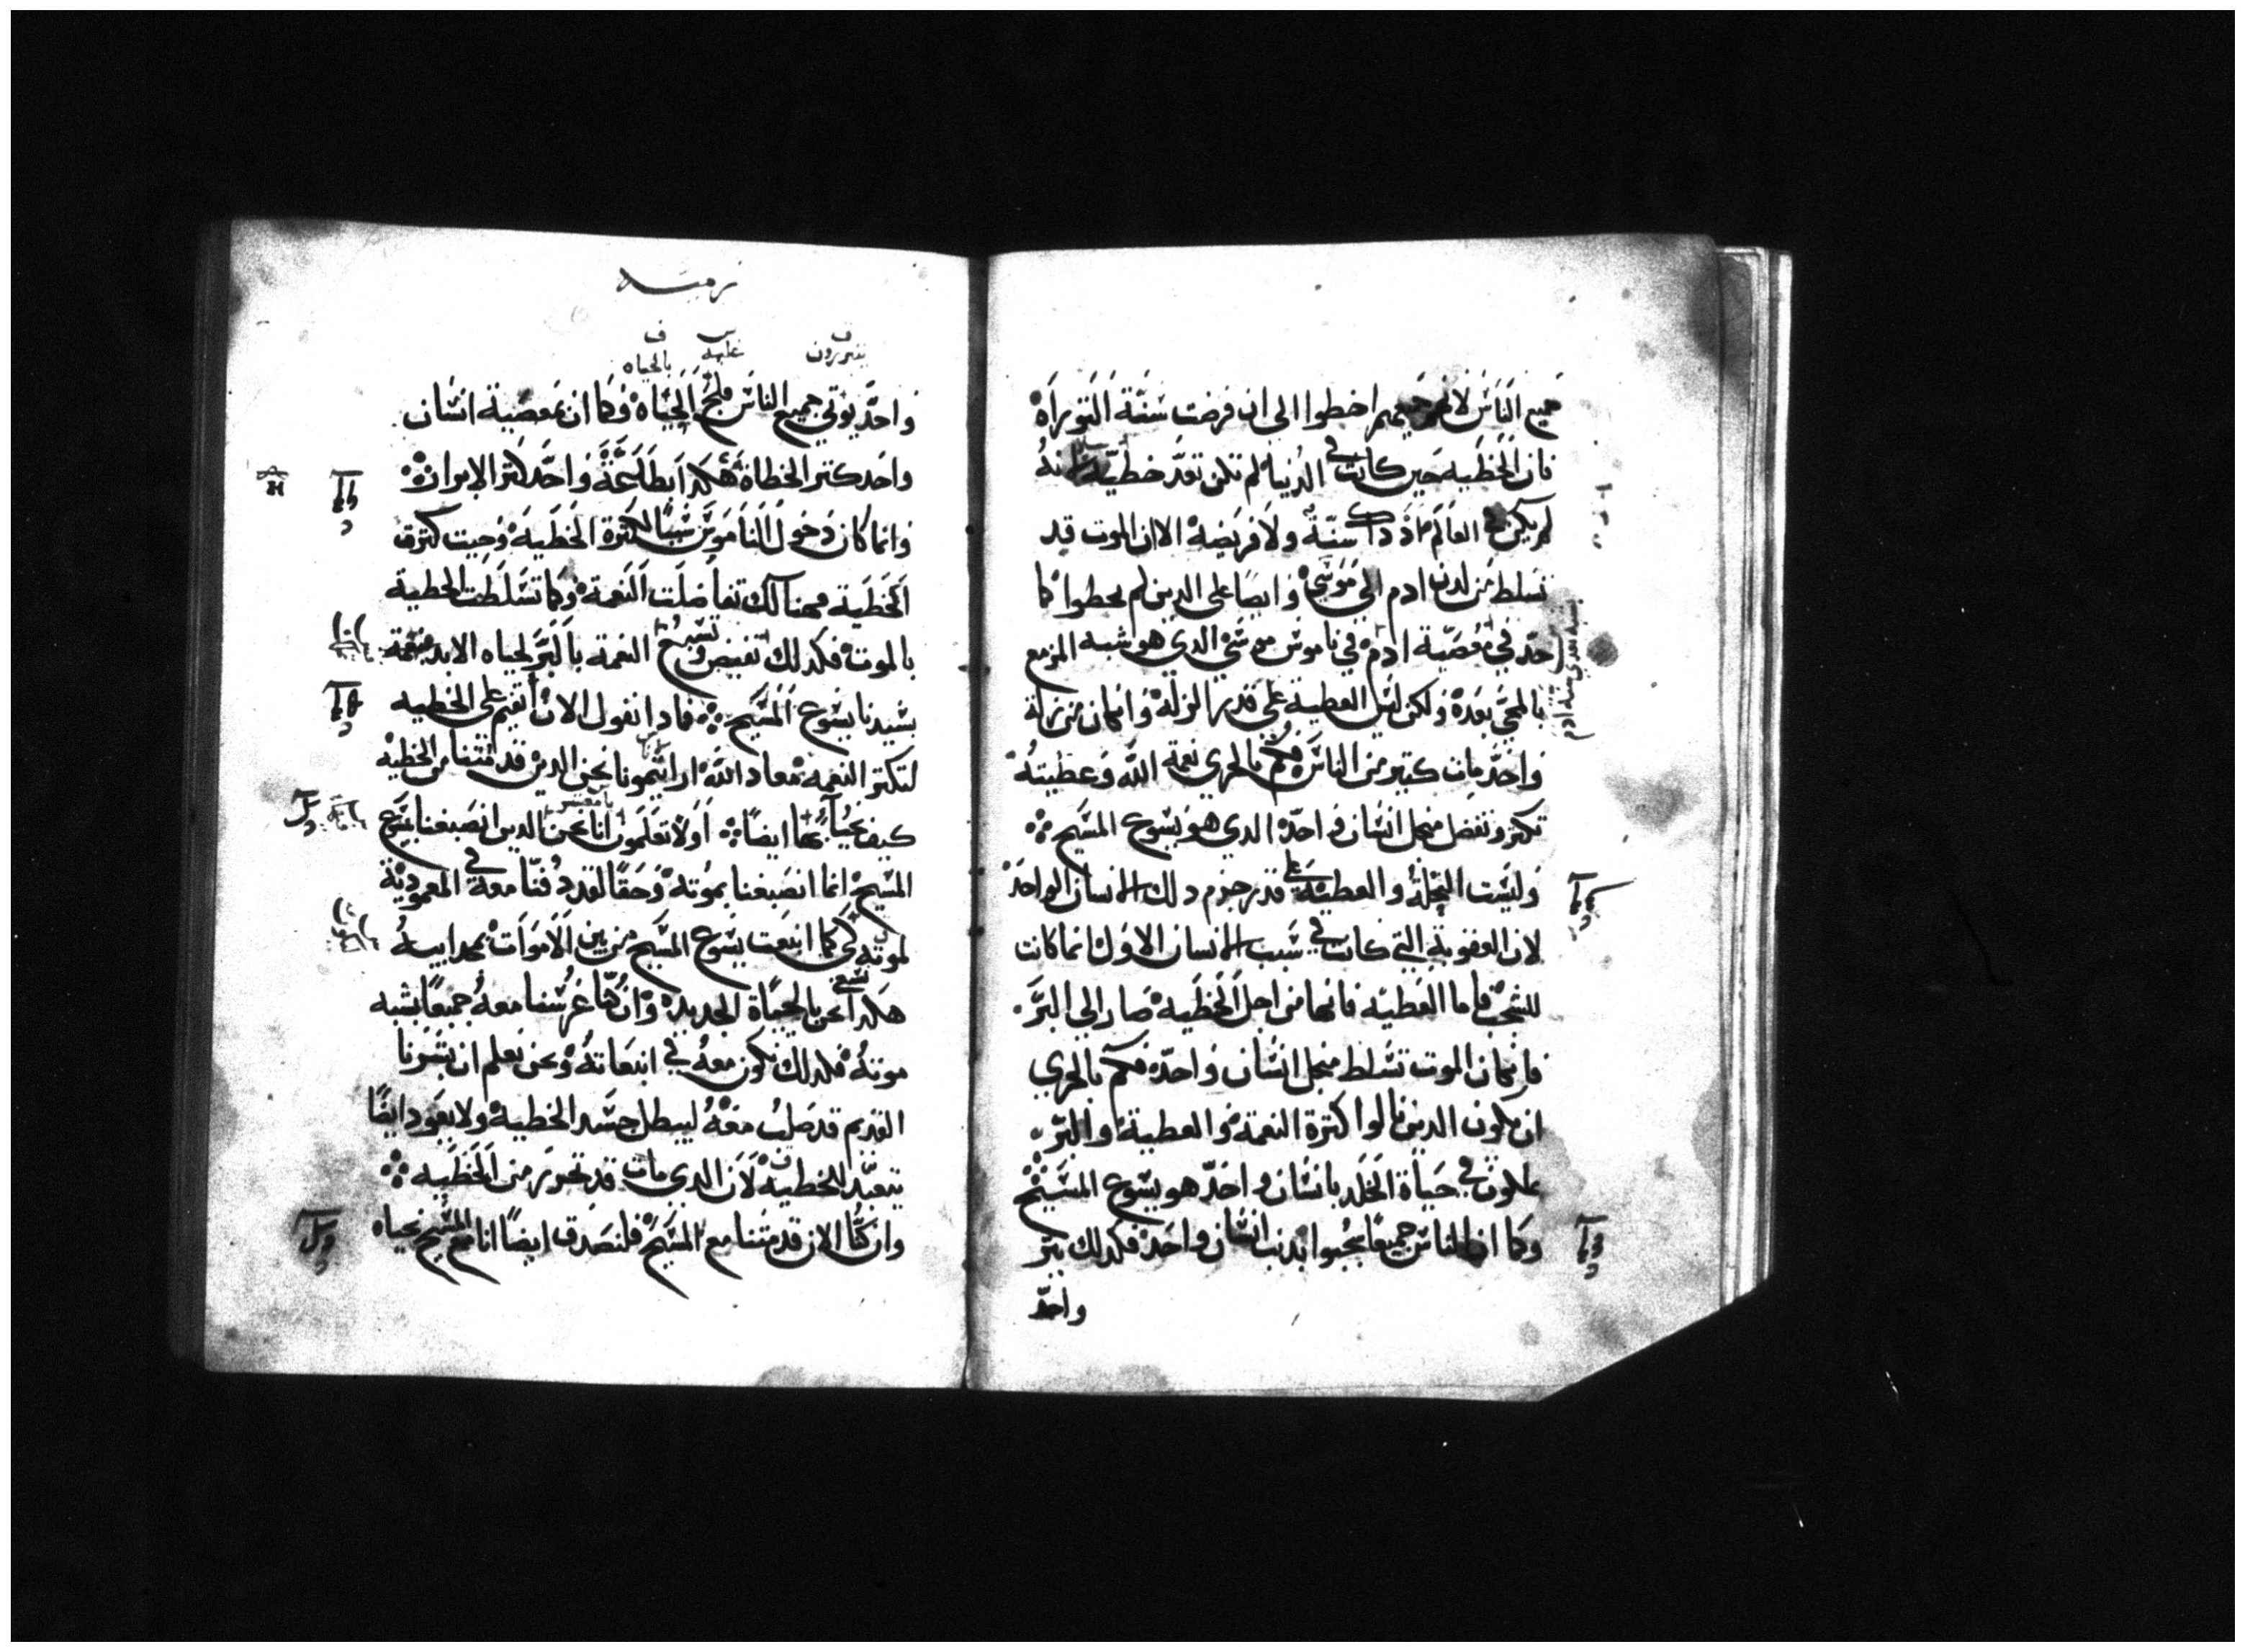 جميع الناس لانهم جميعهم اخطوا الى ان فرضت سنة التوراه
فان الخطيه حين كانت في الدنيا لم تكن تعد خطيه لانه
لم يكن في العالم اذ داك سنة ولا فريضه الا ان الموت قد
تسلط من لدن ادم الى موسى وايضا على الدين لم يخطوا كما
حد في معصية ادم في ناموس موسى الدي هو شبه المزمع
بالمجي بعده ولكن ليس العطية على قدر الزله وان كان من زلة
واحد مات كتير من الناس فكم بالحري نعمة الله وعطيته
تكتر وتفضل من اجل انسان واحد الدي هو يسوع المسيح
وليست النحلة والعطية على قدر جرم دلك الانسان الواحد
لان العقوبة التي كانت في سبب الانسان الاول انما كانت
للشجب فاما العطيه فانها من اجل الخطيه صار الى البر
فان كان الموت تسلط من اجل انسان واحد فكم بالحري
ان يكون الدين نالوا كترة النعمة والعطية والبر
يملكون في حياة الخلد بانسان واحد هو يسوع المسيح
وكما ان الناس جميعا يجبوا بدنب انسان واحد فكدلك ببر
واحد
رومية
يتبررون عليه بالحياه
واحد يوتي جميع الناس فلج الحياه وكما ان بمعصية انسان
واحد كتر الخطاة هكدا بطاعة واحد كتر الابرار
وانما كان دخول الناموس سببا لكترة الخطيه وحيت كترت
الخطية فهنالك تفاضلت النعمة وكما تسلطت الخطية
بالموت فكدلك تفيض وتسبح النعمة بالبر لحياه الابد
بسيدنا يسوع المسيح فمادا نقول الان انقيم على الخطيه
لتكتر النعمه معاد الله ارايتمونا نحن الدين قد متنا من الخطيه
كيف نحيا بها ايضا اولا تعلمون اننا نحن الدين انصبغنا بيسوع
المسيح انما انصبغنا بموته وحقا لقد دفنا معه في المعمودية
لموته لكي كما انبعت يسوع المسيح من بين الاموات بمجد ابيه
هكدا نسعى نحن بالحياة الجديده وان كنا غرسنا معه جميعا بشبه
موته فكدلك نكون معه في انبعاته ونحن نعلم ان بشرنا
القديم قد صلب معه ليبطل جسد الخطيه ولا يعود ايضا
يتعبد للخطيه لان الدي مات قد تحرر من الخطيه
وان كنا الان قد متنا مع المسيح فلنصدق ايضا انا مع المسيح نحياه